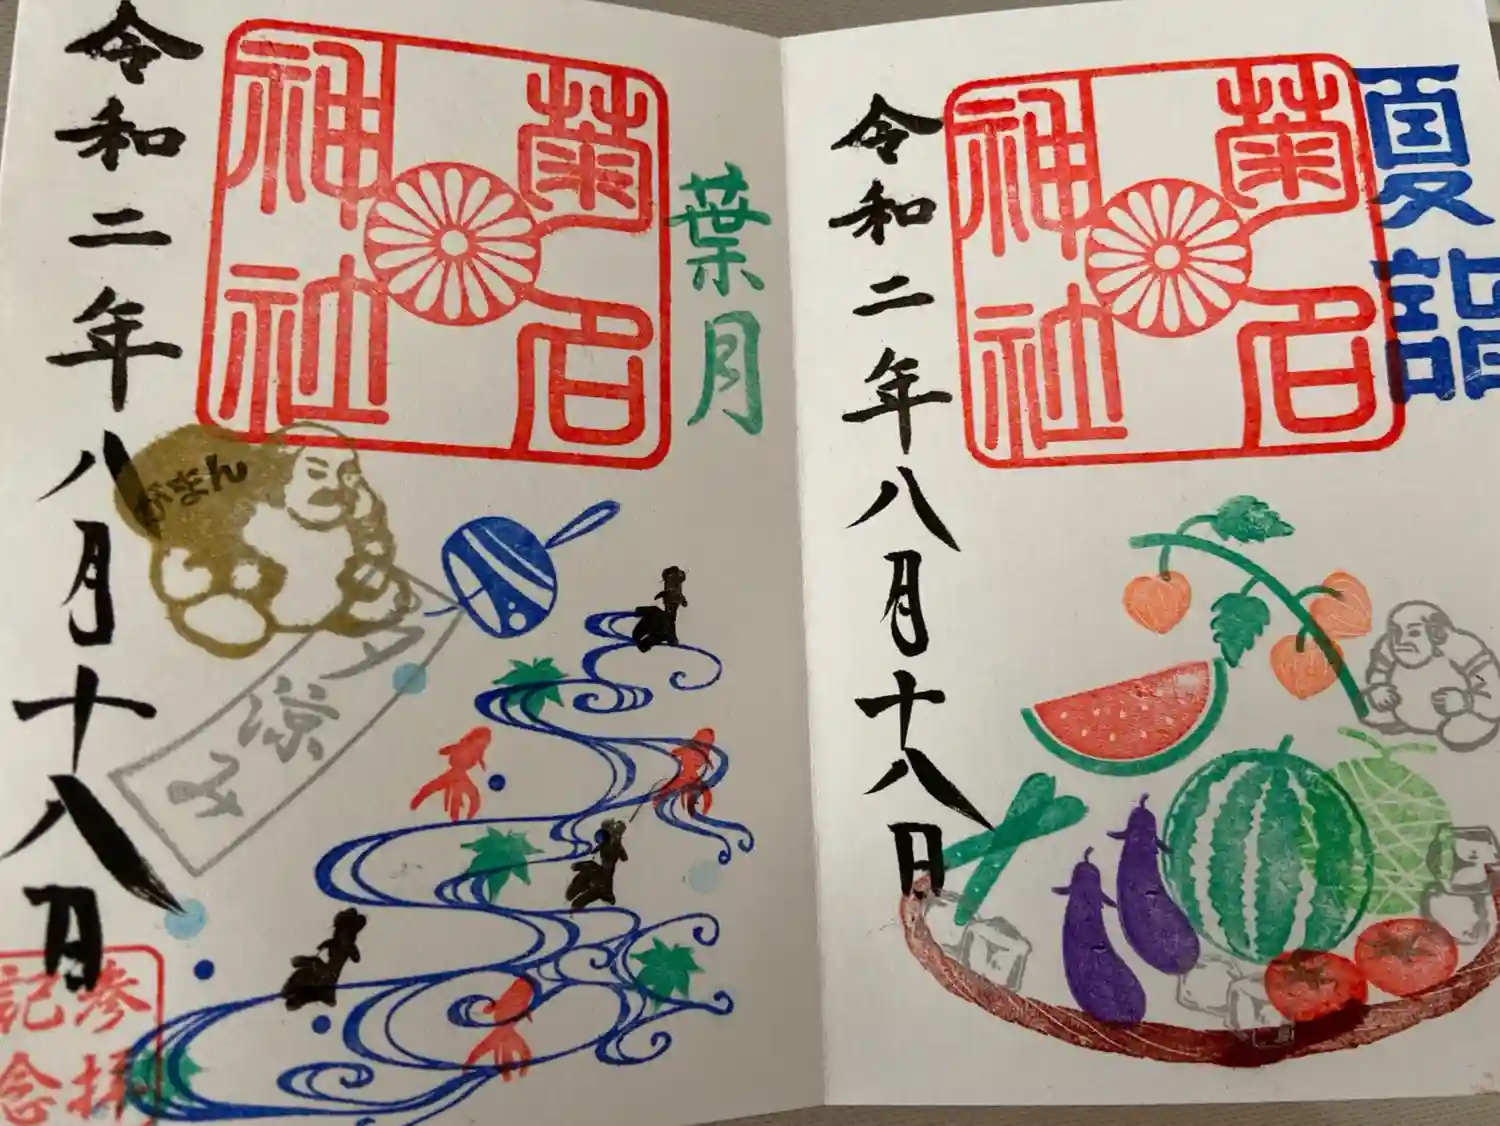 夏詣
菊名
神社
令和二年八月十八日
葉月
菊名
神社
がまん
夕涼み
令和二年八月十八日
参拝
記念